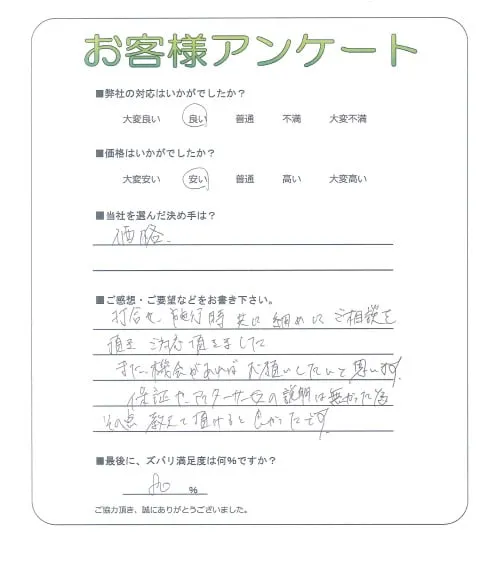 お客様アンケート
■弊社の対応はいかがでしたか？
大変良い 良い 普通 不満 大変不満
■価格はいかがでしたか？
大変安い 安い 普通 高い 大変高い
■当社を選んだ決め手は？
価格、
■ご感想・ご要望などをお書き下さい。
打合せ、施行時 共に 細めに ご相談を
頂き ご対応 頂きました
また、機会があれば お願いしたいと 思います
保証や アフターサービスの説明は無かった為
その点 教えて頂けると 良かったです
■最後に、ズバリ満足度は何%ですか？
80 %
ご協力頂き、誠にありがとうございました。